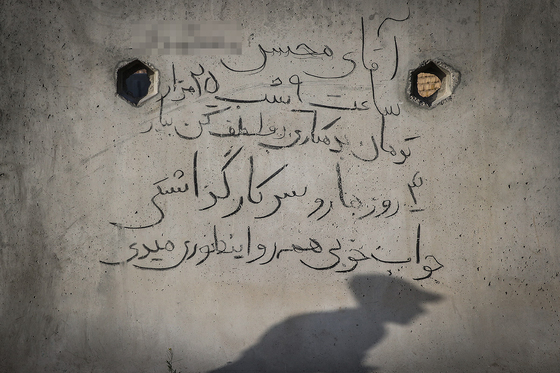 آقای محسن
ساعت ۹ شب ۲۵ هزار
تومان بدهکاری رو لطف کن بیار
۳ روز مارو سرکار گذاشتی
جواب خوبی همه رو اینطوری میدی